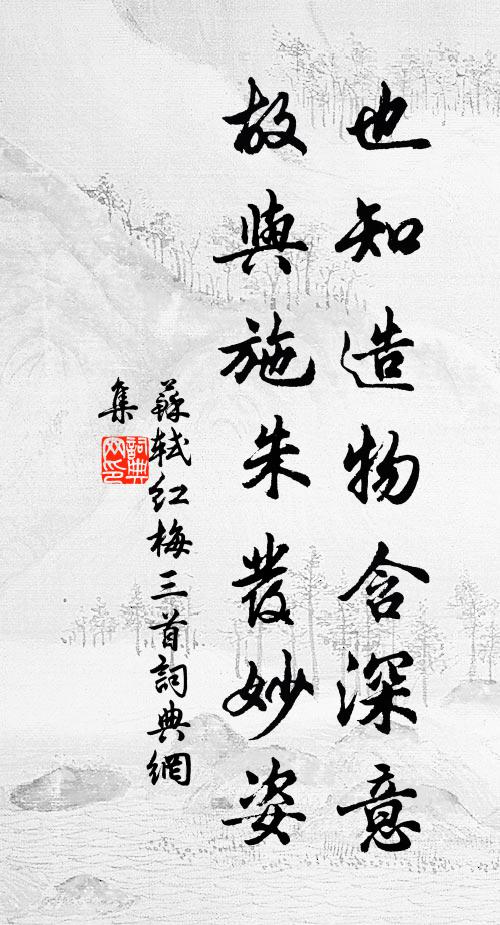 也知造物含深意
故與施朱發妙姿
蘇軾紅梅三首詞典網
集
詞典
网印